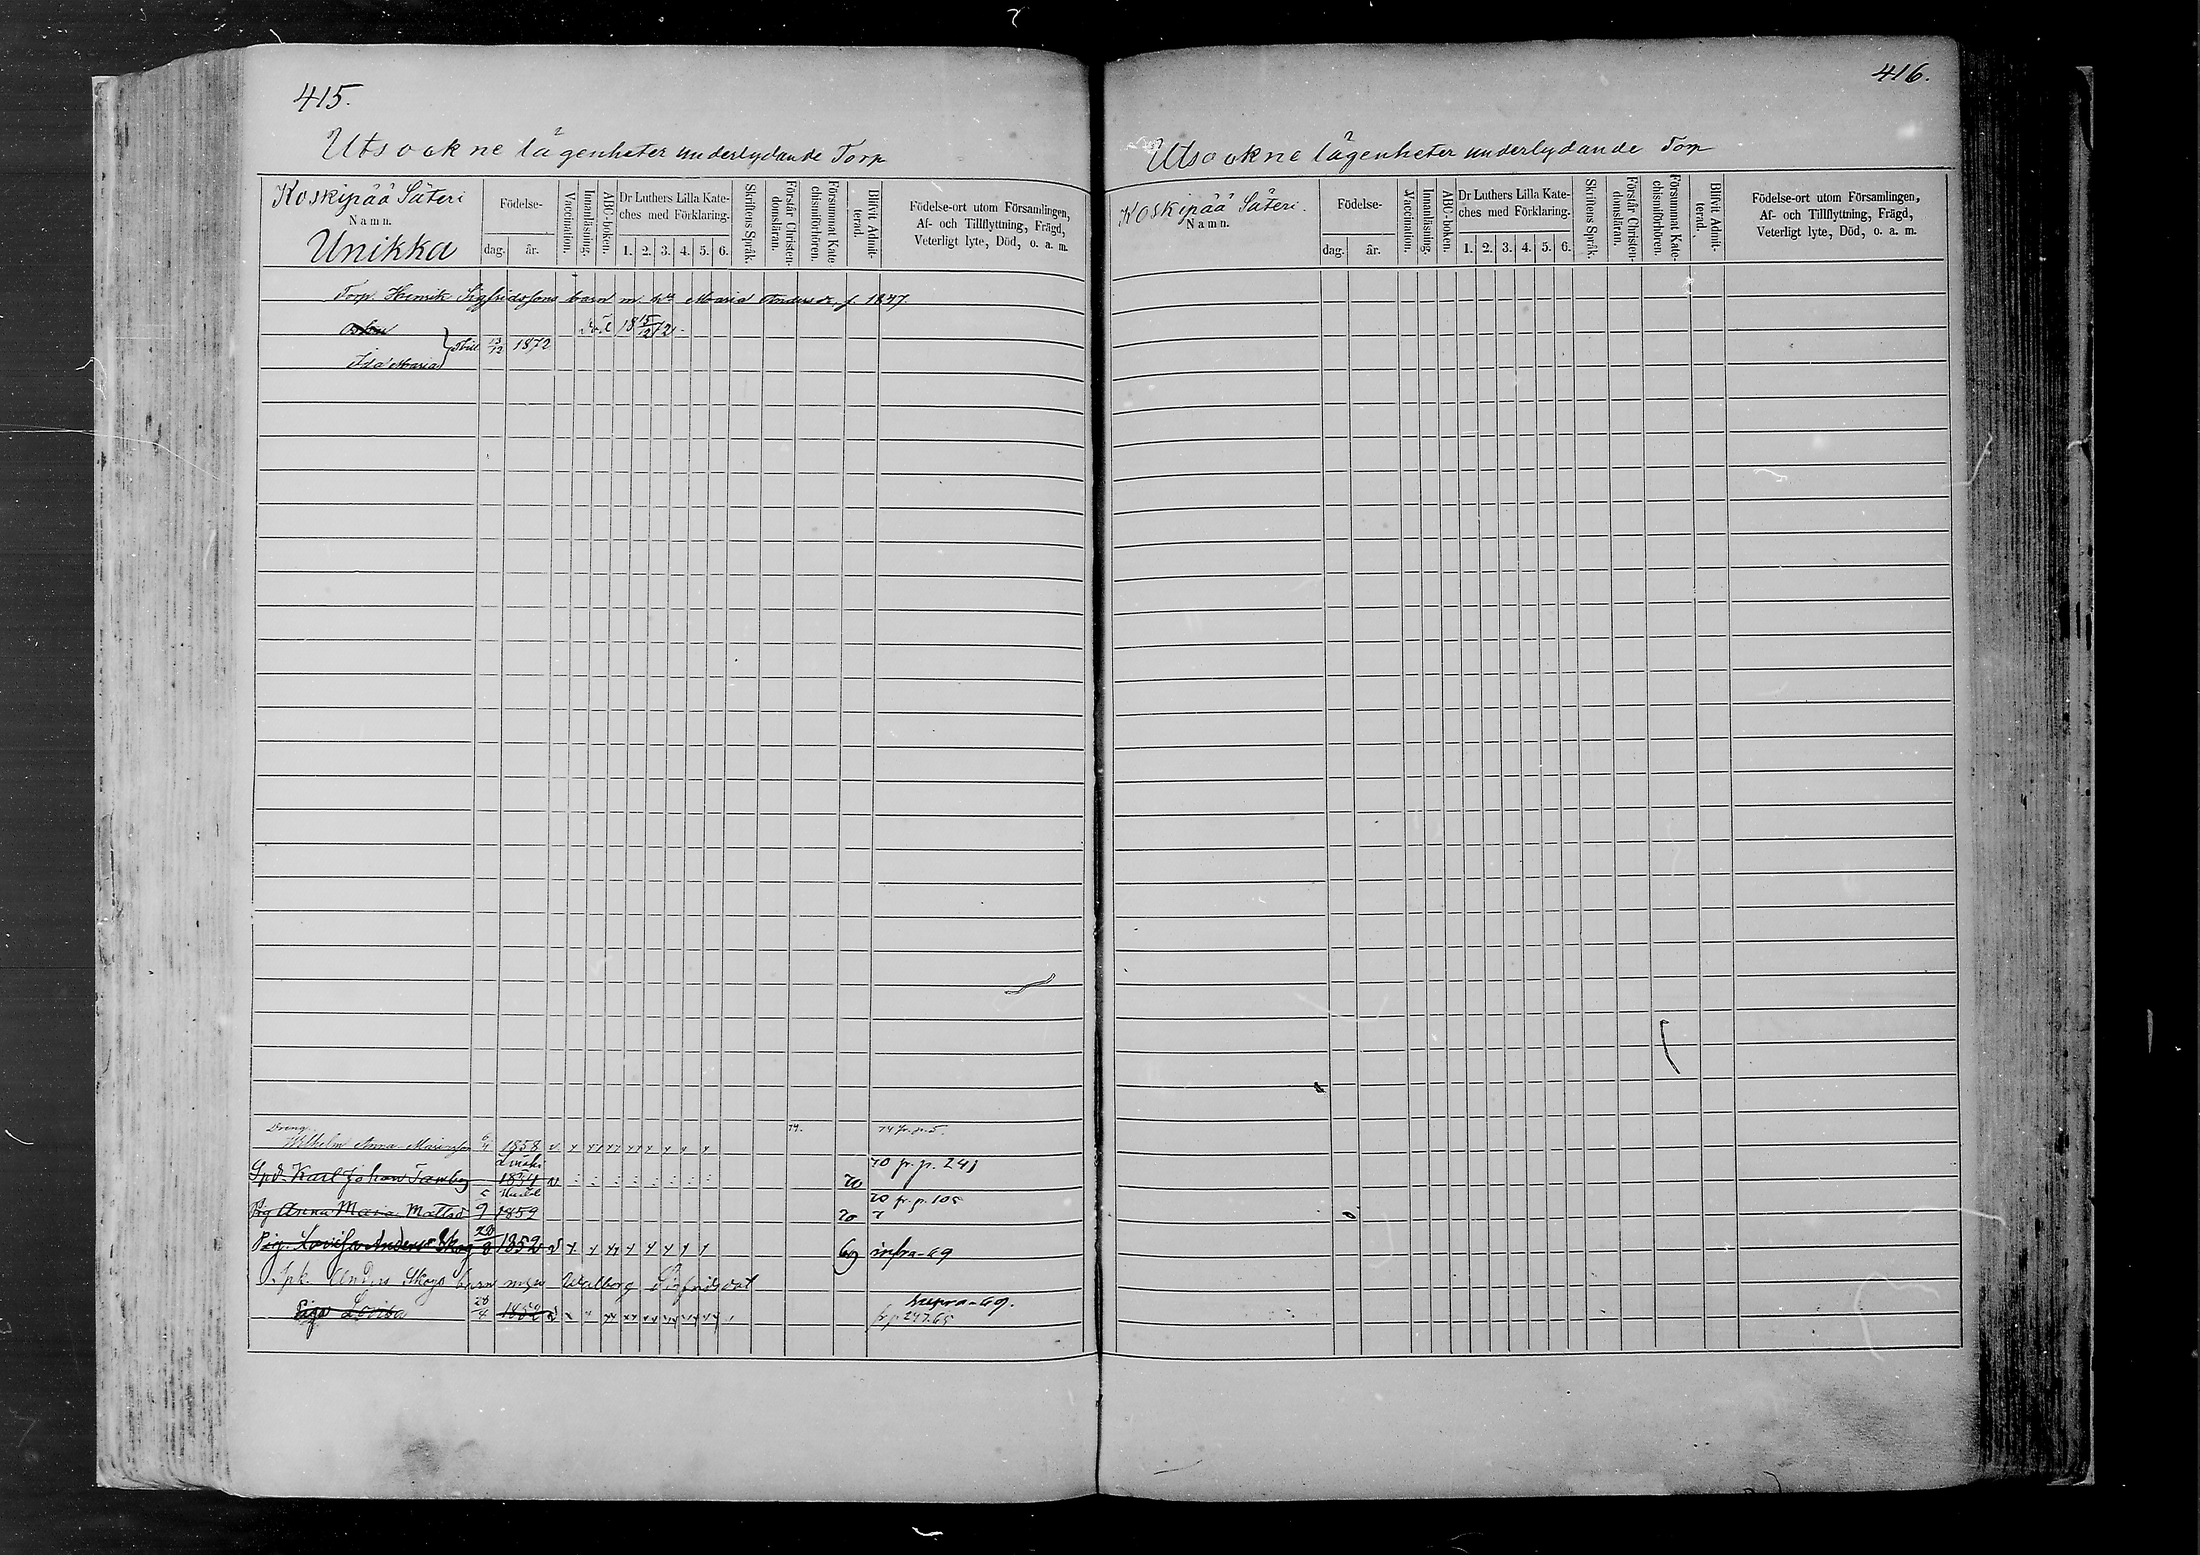 415.
Utsockne lägenheter underlydande Torp
Koskipää Säteri
Namn.
Unikka
Födelse-
dag.
år.
Vaccination.
Innanläsning.
ABC-boken.
Dr Luthers Lilla Kate-
ches med Förklaring.
1. 2. 3. 4. 5. 6.
Skriftens Språk.
Förstår Christen-
domsläran.
Försummat Kate-
chismiförhören.
Blifvit Admit-
terad.
Födelse-ort utom Församlingen,
Af- och Tillflyttning, Frägd,
Veterligt lyte, Död, o. a. m.
Torp. Henrik Sigfridssons barn m. h. Maria Andersd. f. 1847
död 18 15/12 72.
Ida Maria
13/12 1872
Dreng
Wilhelm Anna Mariasson 6/11 1858 v
74.
74 fr. p. 5.
Spd. Karl Johan Tamberg 1834 v
70
70 fr. p. 241
Pig Anna Maria Mattsd 5/9 1859
70
70 fr. p. 105
Pig. Lovisa Anders Skog 28/8 1852 v
69
infra 69
Spk. Anders Skogs barn m. Walborg Sigfridsdot
Piga Lovisa 28/4 1852 v
supra 69.
fr p 247.65
416.
Utsockne lägenheter underlydande Torp
Koskipää Säteri.
Namn.
Födelse-
dag.
år.
Vaccination.
Innanläsning.
ABC-boken.
Dr Luthers Lilla Kate-
ches med Förklaring.
1. 2. 3. 4. 5. 6.
Skriftens Språk.
Förstår Christen-
domsläran.
Försummat Kate-
chismiförhören.
Blifvit Admit-
terad.
Födelse-ort utom Församlingen,
Af- och Tillflyttning, Frägd,
Veterligt lyte, Död, o. a. m.